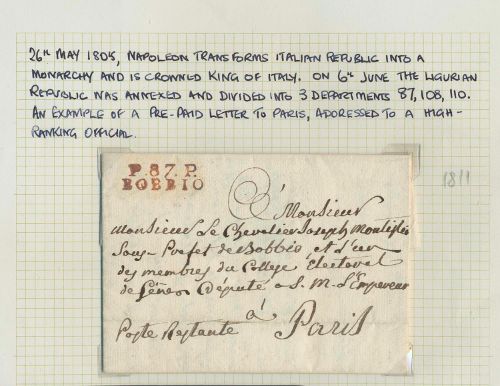 26TH MAY 1805, NAPOLEON TRANSFORMS ITALIAN REPUBLIC INTO A
MONARCHY AND IS CROWNED KING OF ITALY. ON 6TH JUNE THE LIGURIAN
REPUBLIC WAS ANNEXED AND DIVIDED INTO 3 DEPARTMENTS 87, 108, 110.
AN EXAMPLE OF A PRE-PAID LETTER TO PARIS, ADDRESSED TO A HIGH-
RANKING OFFICIAL.
P.87.P.
BOBBIO
1811
à Monsieur
Monsieur Le Chevalier Joseph
Sous-Prefet de Bobbio et d'un
des membres du College électoral
de Gênes Député a S. M. L'Empereur
à
Poste Restante Paris